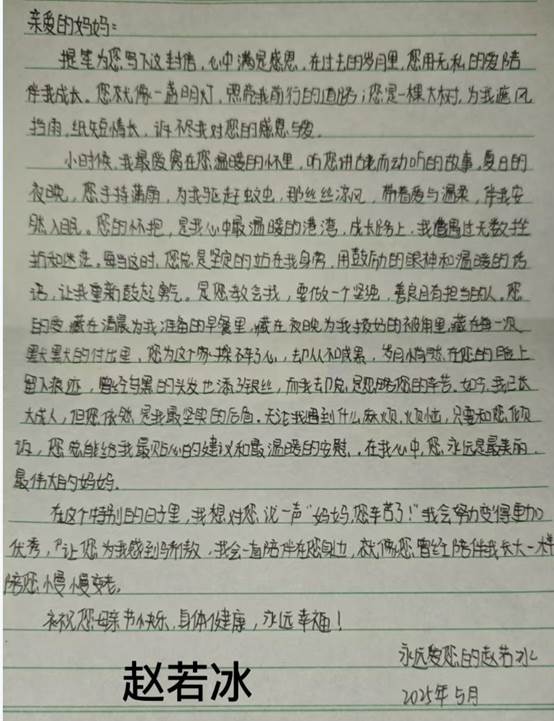 亲爱的妈妈：
提笔为您写下这封信，心中满是感恩，在过去的岁月里，您用无私的爱陪
伴我成长。您就像一盏明灯，照亮我前行的道路；您是一棵大树，为我遮风
挡雨，纸短情长，诉不尽我对您的感恩与爱。
小时候，我最爱窝在您温暖的怀里，听您讲生动而动听的故事，夏日的
夜晚，您手持蒲扇，为我驱赶蚊虫，那丝丝凉风，带着爱与温柔，伴我安
然入眠。您的怀抱，是我心中最温暖的港湾，成长路上，我遭遇过无数挫
折和迷茫。每当这时，您总是坚定的站在我身旁，用鼓励的眼神和温暖的话
语，让我重新鼓起勇气。是您教会我，要做一个坚强，善良且有担当的人。您
的爱，藏在清晨为我准备的早餐里，藏在夜晚为我掖好的被角里，藏在每一次
默默的付出里，您为这个家操碎了心，却从不言累，岁月悄然在您的脸上
留下痕迹，曾经乌黑的头发也添了银丝，而我却总是忽略您的辛苦。如今，我已长
大成人，但您依然是我最坚实的后盾。无论我遇到什么麻烦，烦恼，只要和您倾
诉，您总能给我最贴心的建议和最温暖的安慰，在我心中，您永远是最美丽，
最伟大的妈妈。
在这个特别的日子里，我想对您说一声"妈妈，您辛苦了！"我会努力变得更加
优秀，让您为我感到骄傲，我会一直陪伴在您身边，就像您曾经陪伴我长大一样
陪您慢慢变老。
祝您母亲节快乐，身体健康，永远幸福！
永远爱您的赵若冰
赵若冰
2025年5月